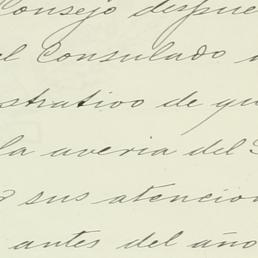 Consejo despue
el Consulado
strativo de qu
la averia del S
sus atencion
antes del año